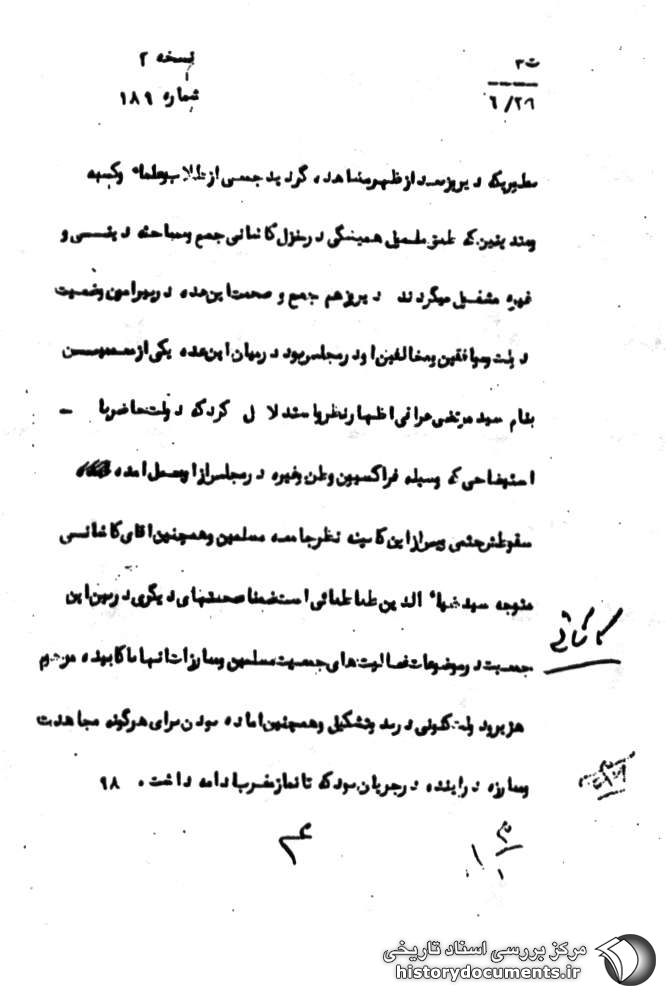 نسخه ۲
ت۳
شماره ۱۸۹
۶/۲۶
بطوریکه دیروز بعد از ظهر مشاهده گردید جمعی از طلاب و علماء و کسبه
ومتدینین که طبق معمول همیشگی در منزل کاشانی جمع و بمباحثه دینی و
غیره مشغول میگردند دیروز هم جمع و صحبت این عده در پیرامون وضعیت
دولت و موافقین و مخالفین او در مجلس بود در میان این عده یکی از معممین
بنام سید مرتضی عراقی اظهار نظر و استدلال کرد که دولت حاضر با
استیضاحی که بوسیله فراکسیون وطن وغیره در مجلس از او بعمل امده
سقوطش حتمی وپس از این کابینه نظر جامعه مسلمین وهمچنین اقای کاشانی
متوجه سید ضیاء الدین طباطبائی است ضمنا صحبتهای دیگری در بین این
جمعیت در موضوعات فعالیت های جمعیت مسلمین ومبارزات انها با کابینه مرحوم
هژیر و دولت کنونی در بد وتشکیل وهمچنین اماده بودن برای هرگونه مجاهدت
ومبارزه در اینده در جریان بود که تا نماز مغرب ادامه داشت. ۹۸
کاشانی
م
مرکز بررسی اسناد تاریخی
historydocuments.ir